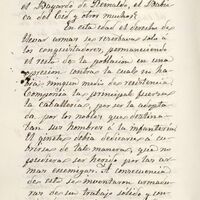 el Bayardo de Bernaldo, el Baluar
ca del Cid y otros muchos.
En esta edad el derecho de
llevar armas se reservaba solo á
los conquistadores, permaneciendo
el resto de la poblacion en una
opresion contra la cual no ha
bia ningun medio de resistencia.
Componia la principal fuerza
la caballeria, por ser la adopta
da, por los nobles que destina
ban sus hombres á la infanteria.
El ginete debia dedicarse á cu
brirse de tal manera, que no
pudiera ser herido por las ar
mas enemigas. A consecuencia
de esto se inventaron armadu
ras de un trabajo solido y con